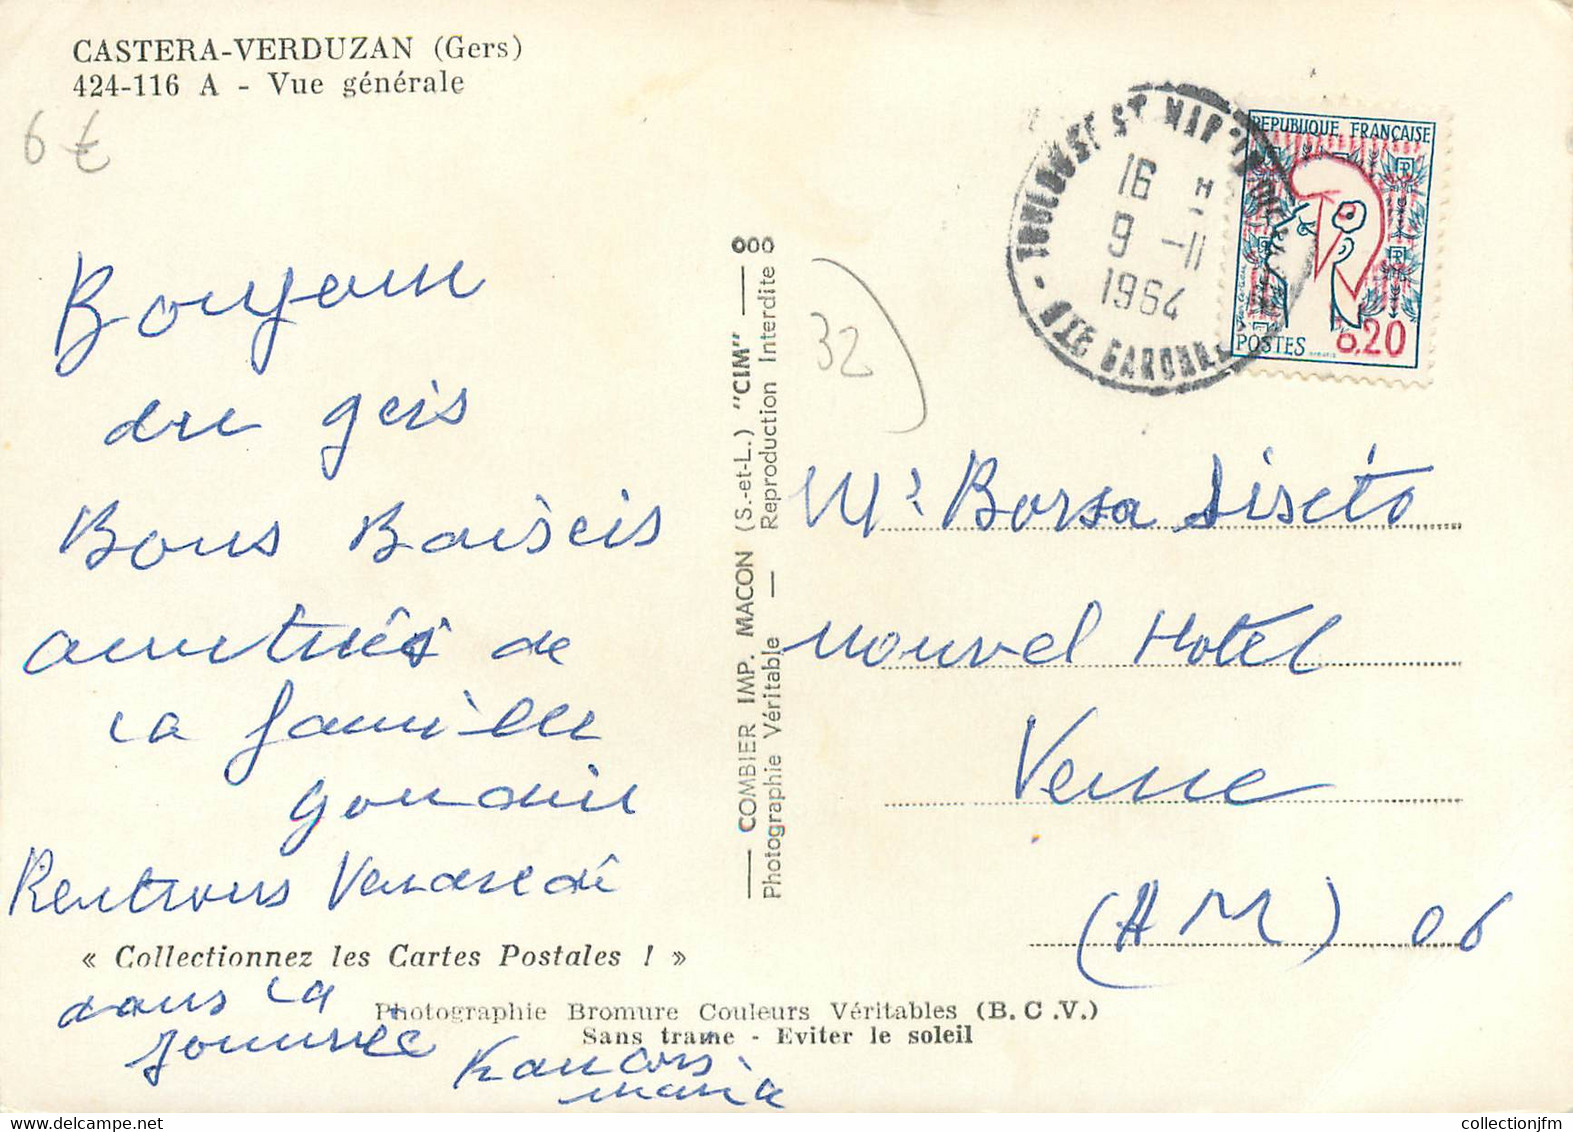 CASTERA-VERDUZAN (Gers)
424-116 A - Vue générale
6 €
Bonjour
du gers
Bons Baiseis
amitiés de
la famille
Rentrons Vendredi
dans la
journnée
maria
« Collectionnez les Cartes Postales ! »
Photographie Bromure Couleurs Véritables (B.C.V.)
Sans trame - Eviter le soleil
COMBIER IMP. MACON (S.-et-L.) "CIM"
Photographie Véritable — Reproduction Interdite
32
TOULOUSE ST
16 H
9 -11
1964
HTE GARONNE
REPUBLIQUE FRANÇAISE
0,20
POSTES
Mr Borsa Siseto
nouvel Hotel
Vence
(AM) 06
collectionjfm